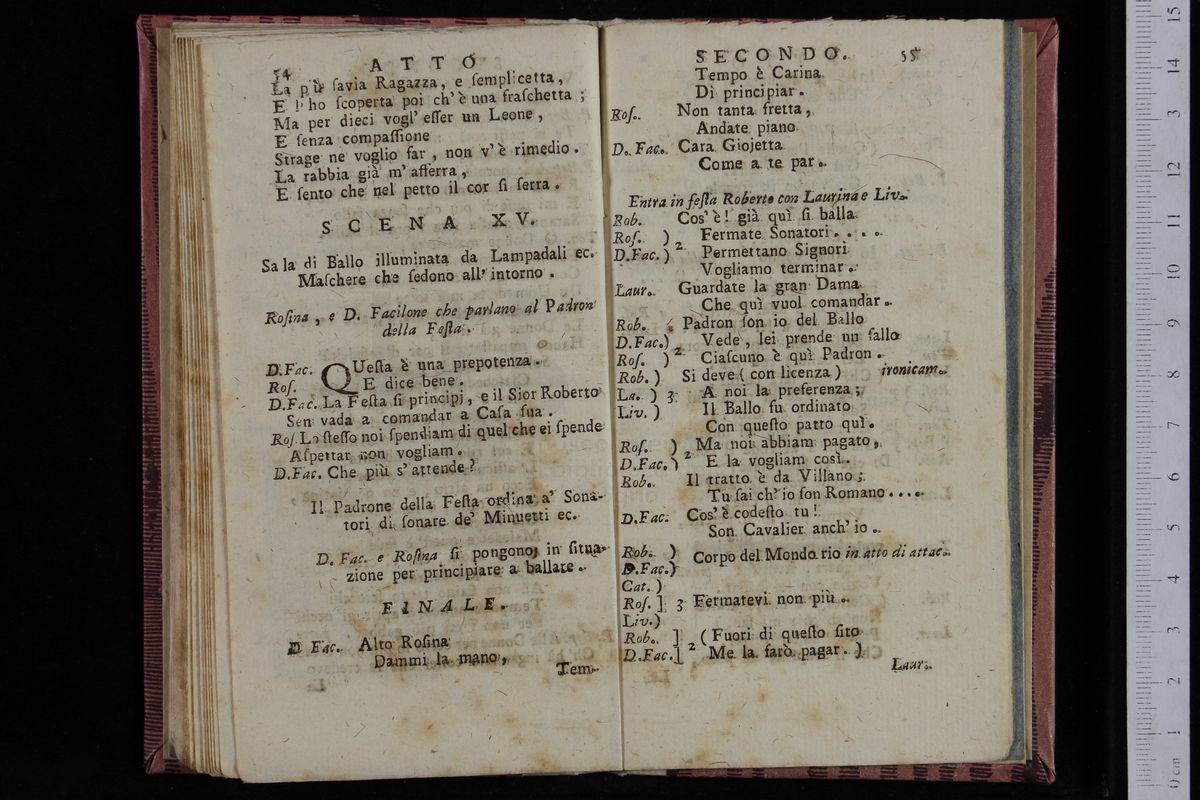 54 ATTO
La più ſavia Ragazza, e ſemplicetta,
E l'ho ſcoperta poi ch'è una fraſchetta;
Ma per dieci vogl' eſſer un Leone,
E ſenza compaſſione
Strage ne voglio far, non v'è rimedio.
La rabbia già m'afferra,
E ſento che nel petto il cor ſi ſerra.
SCENA XV.
Sala di Ballo illuminata da Lampadali ec.
Maſchere che ſedono all'intorno.
Roſina, e D. Facilone che parlano al Padron
della Feſta.
D.Fac. QUeſta è una prepotenza.
Roſ. E dice bene.
D.Fac. La Feſta ſi principj, e il Sior Roberto
Sen vada a comandar a Caſa ſua.
Roſ. Lo ſteſſo noi ſpendiam di quel che ei ſpende
Aſpettar non vogliam.
D.Fac. Che più s'attende?
Il Padrone della Feſta ordina a' Sona-
tori di ſonare de' Minuetti ec.
D. Fac. e Roſina ſi pongono, in ſitua-
zione per principiare a ballare.
FINALE.
D Fac. Alto Roſina
Dammi la mano,
Tem-
SECONDO. 55
Tempo è Carina
Di principiar.
Roſ. Non tanta fretta,
Andate piano
D. Fac. Cara Giojetta
Come a te par.
Entra in feſta Roberto con Laurina e Liv.
Rob. Cos'è! già quì ſi balla
Roſ. ) Fermate Sonatori....
D.Fac.) 2 Permettano Signori
Vogliamo terminar.
Laur. Guardate la gran Dama
Che quì vuol comandar.
Rob. Padron ſon io del Ballo
D.Fac.) Vede, lei prende un fallo
Roſ. ) 2 Ciaſcuno è quì Padron.
Rob. ) Si deve (con licenza) ironicam.
La. ) 3 A noi la preferenza;
Liv. ) Il Ballo fu ordinato
Con queſto patto quì.
Roſ. ) Ma noi abbiam pagato,
D.Fac.) 2 E la vogliam così.
Rob. Il tratto è da Villano;
Tu ſai ch'io ſon Romano....
D.Fac. Cos'è codeſto tu!
Son Cavalier anch'io.
Rob. ) Corpo del Mondo rio in atto di attac.
D.Fac.)
Cat. )
Roſ. ] 3 Fermatevi non più.
Liv.)
Rob. ] (Fuori di queſto ſito
D.Fac.] 2 Me la farò pagar.)
Laur.